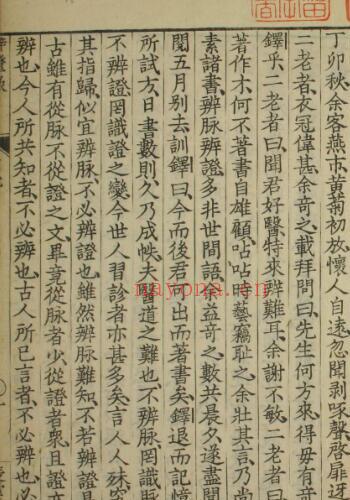 丁卯秋余客燕市黄菊初放懷人自遠忽聞剥啄聲啓扉迓
二老者衣冠偉甚余奇之載拜問曰先生何方來得毋有意
鐸乎二老者曰聞君好醫特來辨難耳余謝不敏二老者曰
著作木何不著書自雄顧呫呫時藝竊恥之余壯其言乃
素諸書辨脉辨證多非世間語余益奇之數共晨夕遂盡聞
閱五月别去訓鐸曰今而後君可出而著書矣鐸退而記憶
所試方日書數則久乃成帙夫醫道之難也不辨脉罔識脉
不辨證罔識證之變今世人習診者亦甚多矣言人人殊
其指歸似宜辨脉不必辨證也雖然辨脉難知不若辨證易
古雖有從脉不從證之文畢竟從脉者少從證者衆且證
辨也今人所共知者不必辨也古人所已言者不必辨也
nayona.cn